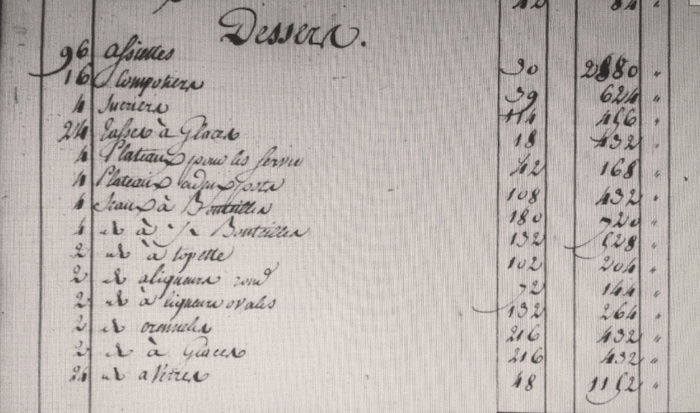 42 84 "
Dessert.
96 assiettes 30 2880 "
16 Compotiers 39 624 "
4 Sucriers 114 456 "
24 Tasses à Glaces 18 432 "
4 Plateaux pour les servir 42 168 "
4 Plateaux à deux pots 108 432 "
4 Seaux à Bouteilles 180 720 "
4 id à ½ Bouteilles 132 528 "
2 id à topette 102 204 "
2 id aliqueurs rond 72 144 "
2 id à liqueurs ovales 132 264 "
2 id crennelés 216 432 "
2 id à Glaces 216 432 "
24 id à Verres 48 1152 "